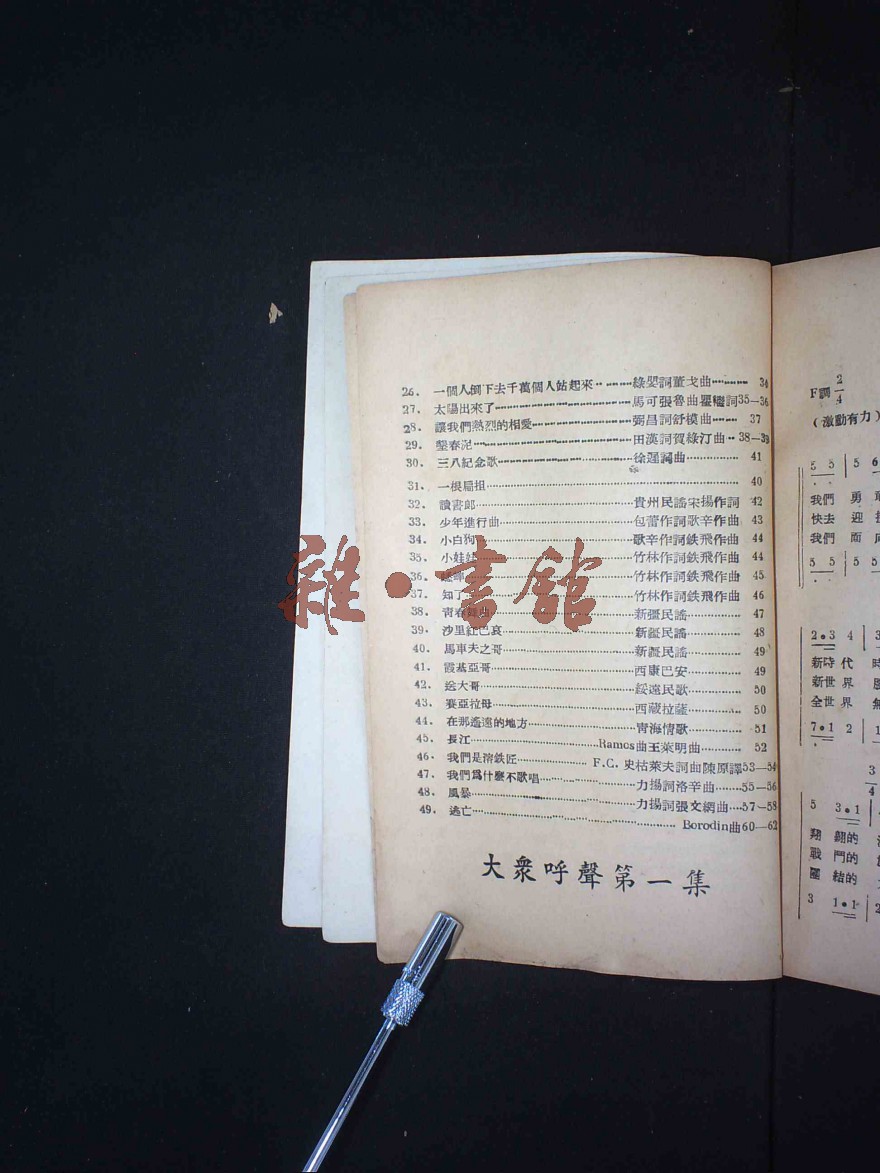 26. 一個人倒下去千萬個人站起來………綠嬰詞董戈曲……… 34
27. 太陽出來了………馬可張魯曲瞿 詞35—36
28. 讓我們熱烈的相愛………弼昌詞舒模曲……… 37
29. 墾春泥………田漢詞賀綠汀曲‥38—39
30. 三八紀念歌………徐遲詞曲……… 41
31. 一根扁担……… 40
32. 讀書郎………貴州民謠宋揚作詞 42
33. 少年進行曲………包蕾作詞歌辛作曲 43
34. 小白狗………歌辛作詞鉄飛作曲 44
35. 小娃娃………竹林作詞鉄飛作曲 44
36. ………竹林作詞鉄飛作曲 45
37. 知了………竹林作詞鉄飛作曲 46
38. 青春舞曲………新彊民謠……… 47
39. 沙里紅巴哀………新疆民謠……… 48
40. 馬車夫之哥………新疆民謠……… 49
41. 霞基亞哥………西康巴安……… 49
42. 送大哥………綏遠民歌……… 50
43. 賽亞拉母………西藏拉薩……… 50
44. 在那遙遠的地方………青海情歌……… 51
45. 長江………Ramos曲王萊明曲……… 52
46. 我們是溶鉄匠………F.C.史枯萊夫詞曲陳原譯53—54
47. 我們爲什麼不歌唱………力揚詞洛辛曲………55—56
48. 風暴………力揚詞張文綱曲………57—58
49. 逃亡………Borodin曲60—62
大衆呼聲第一集
雜·書館
F調 2/4
（激動有力）
5 5 | 5 6
我們 勇
快去 迎
我們 面向
5 5 | 5 5
2•3 4 | 3
新時代 時
新世界
全世界 無
7•1 2 | 1
3/4
5 3•1
翱翔的
戰鬥的
團結的
3 1•1 | 2